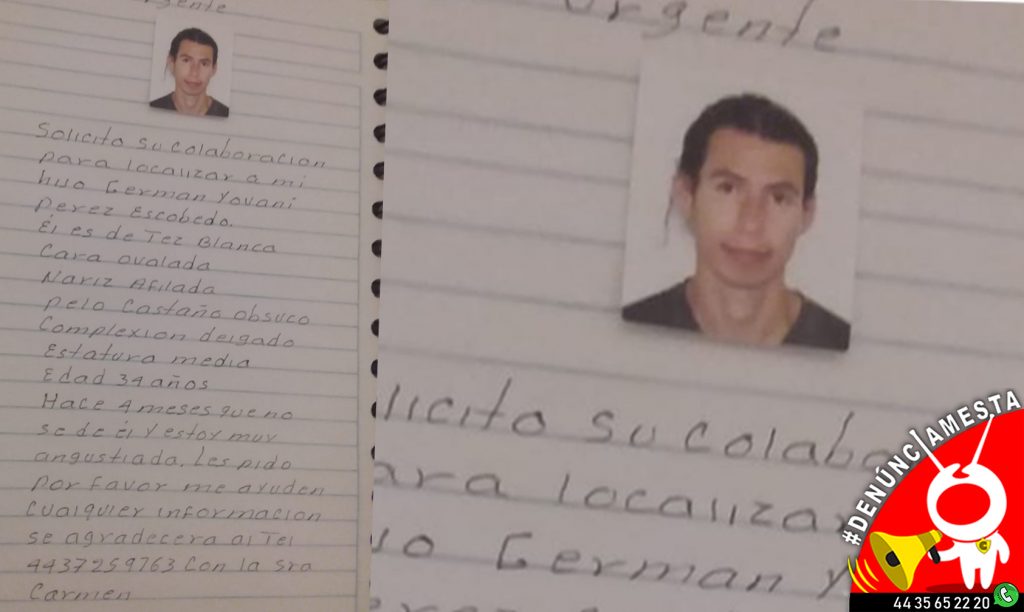 Urgente
Solicito su colaboracion
para localizar a mi
hijo German Yovani
perez Escobedo.
Él es de Tez Blanca
Cara ovalada
Nariz Afilada
pelo Castaño obsuco
Complexion delgado
Estatura media
Edad 34 años
Hace 4 meses que no
se de él y estoy muy
angustiada. Les pido
por favor me ayuden
Cualquier informacion
se agradecera al Tel
4437259763 Con la Sra
Carmen
Urgente
licito su colabo
ara localizar
ijo German Y
#DENÚNCIAMESTA
C
44 35 65 22 20